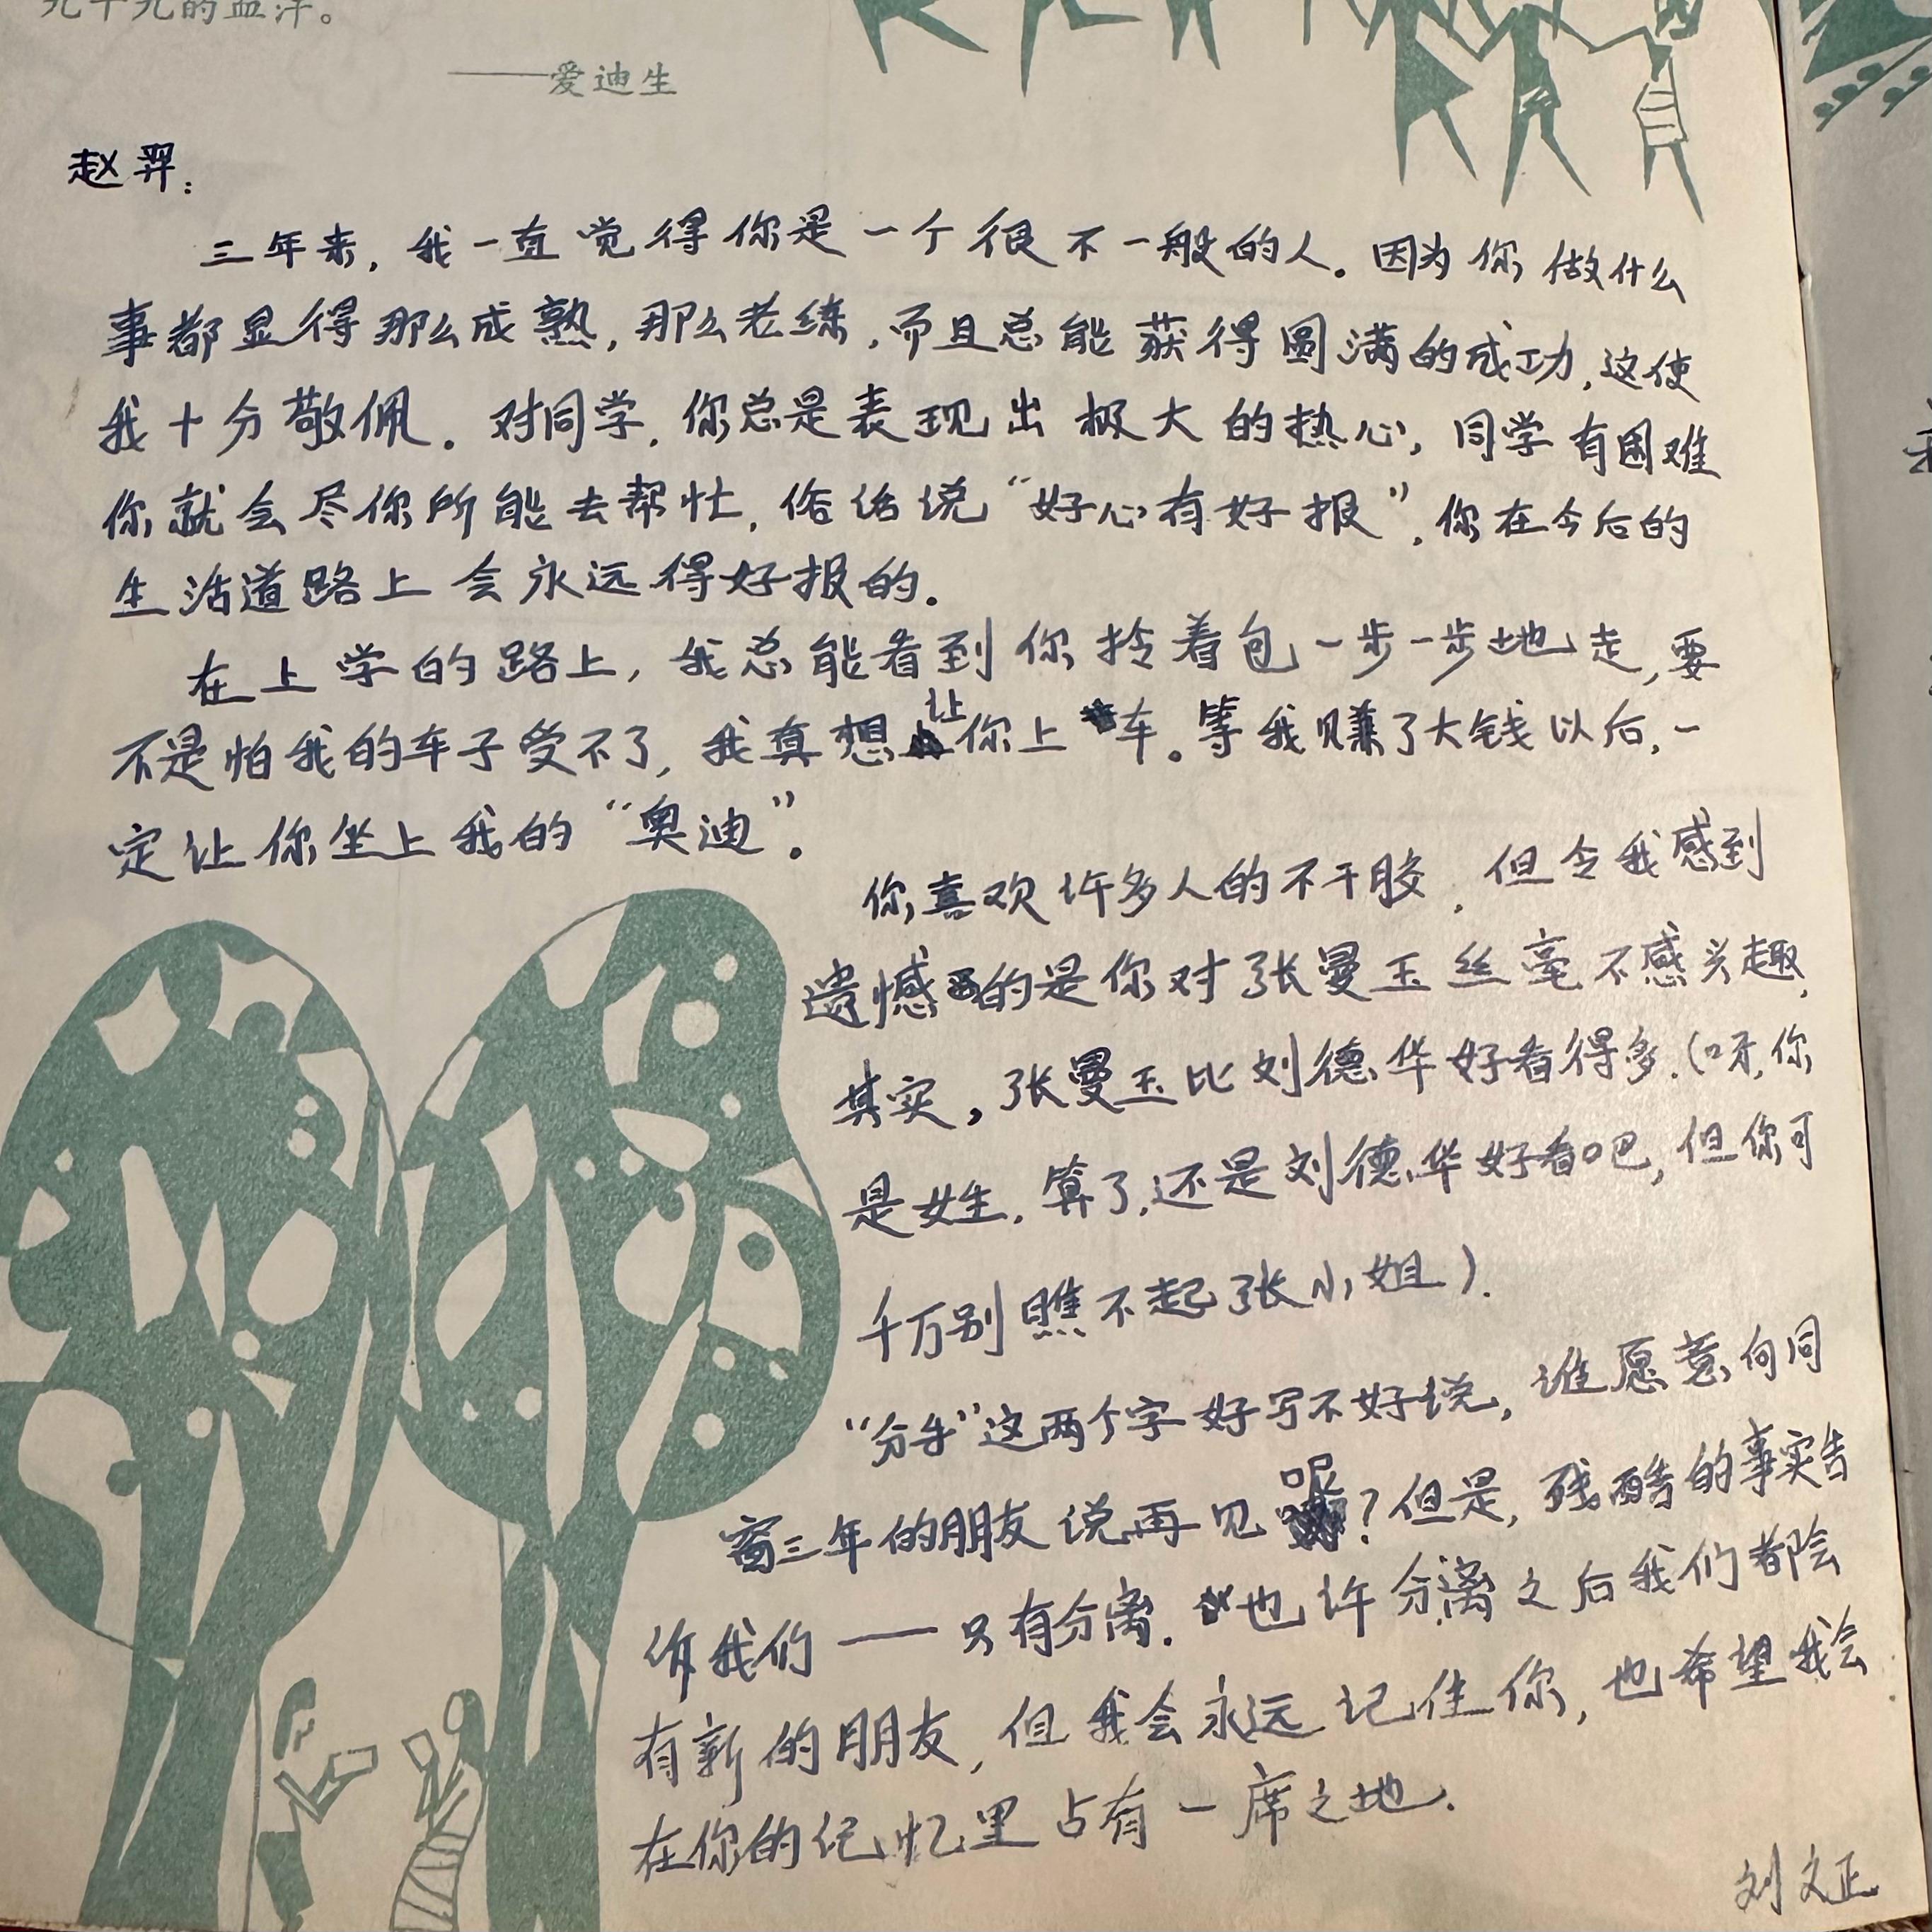 九十九的血汗。
——爱迪生
赵羿：
三年来，我一直觉得你是一个很不一般的人。因为你做什么
事都显得那么成熟，那么老练，而且总能获得圆满的成功，这使
我十分敬佩。对同学，你总是表现出极大的热心，同学有困难
你就会尽你所能去帮忙，俗话说“好心有好报”，你在今后的
生活道路上会永远得好报的。
在上学的路上，我总能看到你拎着包一步一步地走，要
不是怕我的车子受不了，我真想让你上车。等我赚了大钱以后，一
定让你坐上我的“奥迪”。
你喜欢许多人的不干胶，但令我感到
遗憾的是你对张曼玉丝毫不感兴趣，
其实，张曼玉比刘德华好看得多.（呀，你
是女生，算了，还是刘德华好看吧，但你可
千万别瞧不起张小姐）.
“分手”这两个字好写不好说，谁愿意向同
窗三年的朋友说再见呢？但是，残酷的事实告
诉我们——只有分离.也许分离之后我们都会
有新的朋友，但我会永远记住你，也希望我会
在你的记忆里占有一席之地.
刘文正